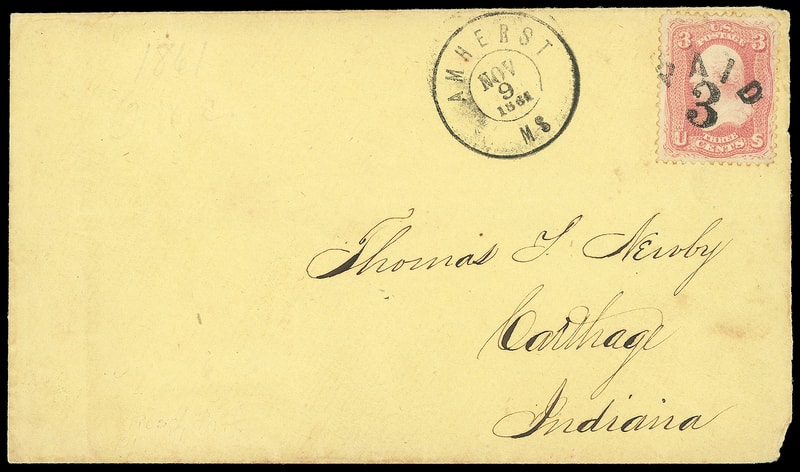 1861
AMHERST
NOV
9
1861
MS
3 U.S. 3
POSTAGE
PAID
3
U THREE S
CENTS
Thomas T. Newby
Carthage
Indiana